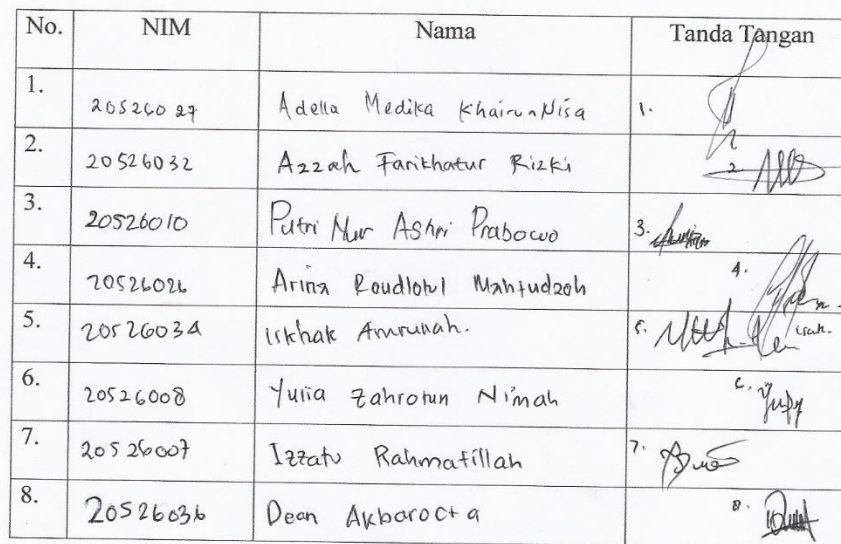 No. NIM Nama Tanda Tangan
1. 20526027 Adella Medika Khairun Nisa 1.
2. 20526032 Azzah Farikhatur Rizki 2.
3. 20526010 Putri Nur Ashri Prabowo 3.
4. 20526026 Arina Roudlotul Mahfudzoh 4.
5. 20526034 Iskhak Amrunah. 5.
6. 20526008 Yulia Zahrotun Ni'mah 6.
7. 20526007 Izzatu Rahmatillah 7.
8. 20526036 Dean Akbarocta 8.